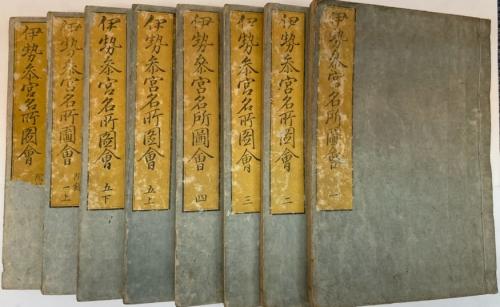 伊勢参宮名所圖會 一
伊勢参宮名所圖會 二
伊勢参宮名所圖會 三
伊勢参宮名所圖會 四
伊勢参宮名所圖會 五上
伊勢参宮名所圖會 五下
伊勢参宮名所圖會 附録 一上
伊勢参宮名所圖會